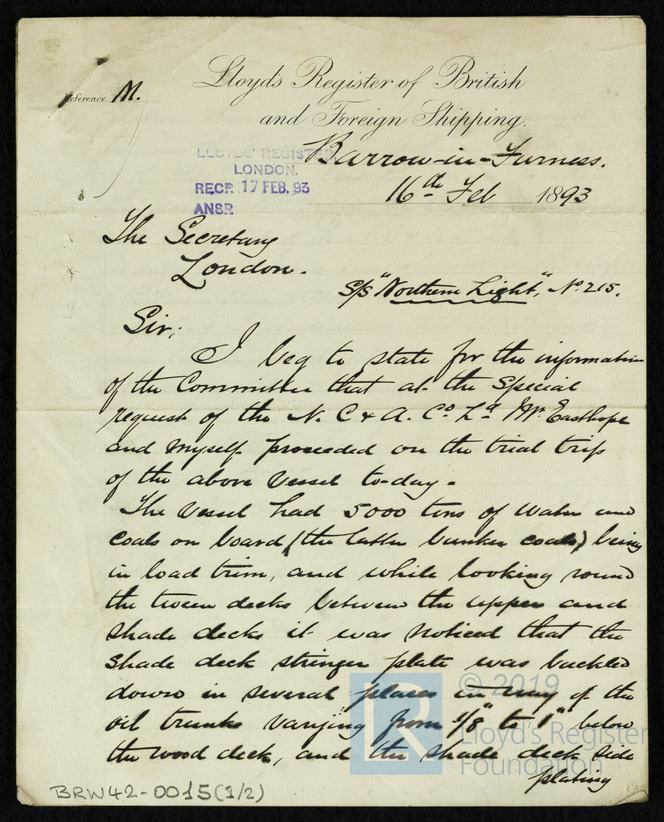 Lloyds Register of British
and Foreign Shipping.
Reference M.
Barrow-in-Furness.
LLOYDS' REGISTER
LONDON.
RECR. 17 FEB. 93
ANSR
16th Feb 1893
The Secretary
London.
S/S "Northern Light", No. 215.
Sir;
I beg to state for the information
of the Committee that at the Special
request of the N. C & A. Co. Ld. Mr. Easthope
and myself proceeded on the trial trip
of the above Vessel to-day.
The Vessel had 5000 tons of Water and
Coals on board (the latter bunker coals) being
in load trim, and while looking round
the tween decks between the upper and
shade decks it was noticed that the
shade deck stringer plate was buckled
down in several places in way of the
oil trunks varying from 1/8" to 1" below
the wood deck, and the shade deck side
plating
BRW42-0015(1/2)
R
© 2019
Lloyd's Register
Foundation